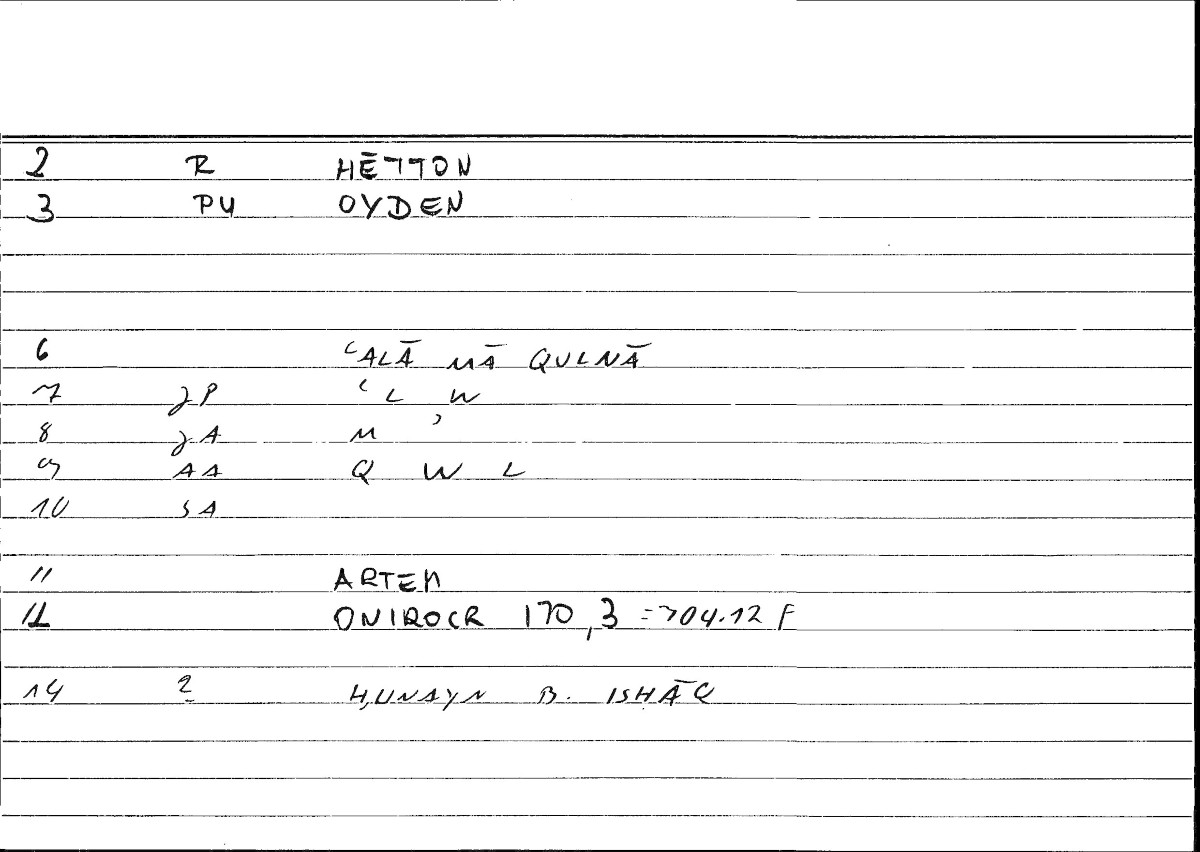 2 R HĒTTON
3 PU OYDEN
6 ʿALĀ MĀ QULNĀ
7 JP ʿ L W
8 JA M ʾ
9 AA Q W L
10 SA
11 ARTEM
12 ONIROCR 170,3 = 704.12 F
14 2 H,UNAYN B. ISHĀQ